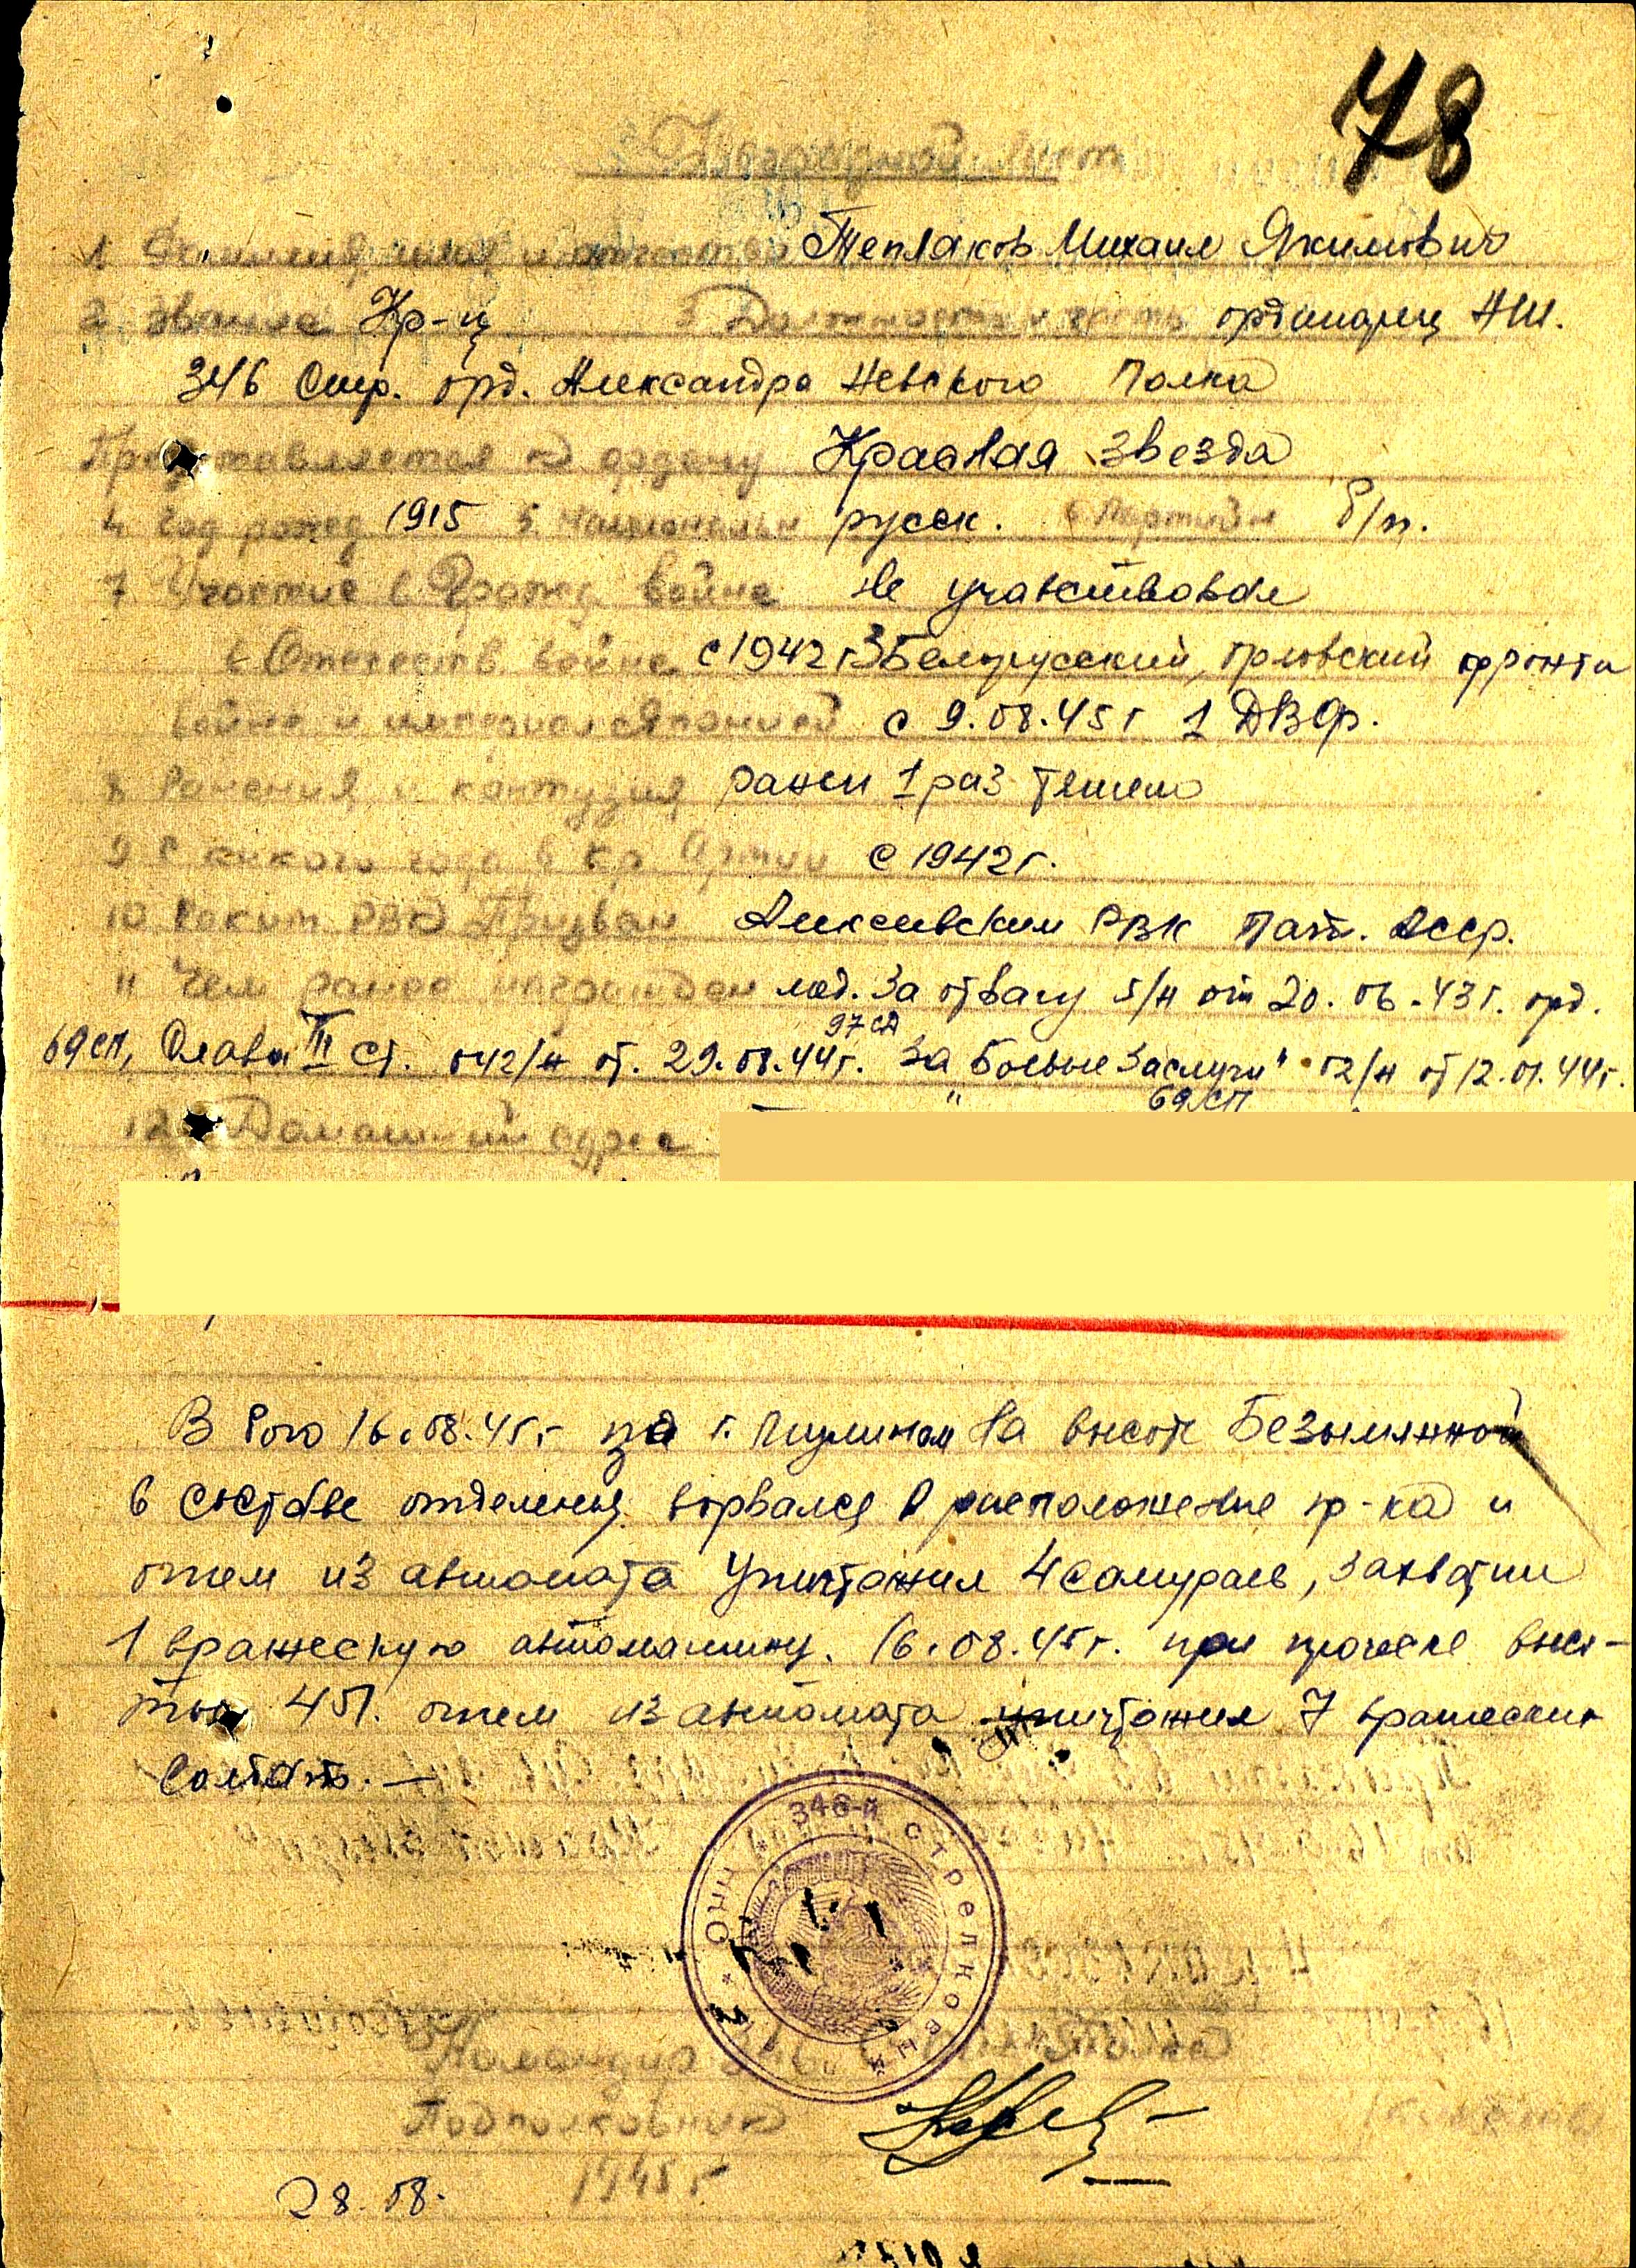 78
Наградной лист
1. Фамилия, имя и отчество Теплаков Михаил Якимович
2 звание Кр-ц 3 Должность и часть ординарец НШ.
346 Стр. орд. Александра Невского Полка
Представляется к ордену Красная Звезда
4 год рожд 1915 5. Национальн русск. 6 Партийн б/п.
7 Участие в Гражд войне не участвовал
в Отечеств. войне с 1942 г 3 Белорусский, орловский фронта
войне с империал Японией с 9.08.45 г 1 ДВФр.
8 Ранения и контузия ранен 1 раз
9 С какого года в Кр Армии с 1942 г.
10 Каким РВК Призван Алексеевским РВК Тат. АССР.
11 Чем ранее награжден мед. За отвагу 5/н от 20.06.43 г. орд.
97 СД
69 СП, Славы III ст. 042/н от. 29.08.44 г. "За Боевые Заслуги" 02/н от 12.01.44 г.
69 СП
12 Домашний адрес
В бою 16.08.45 г на высоте Безымянной
в составе отделения ворвался в расположение пр-ка и
огнем из автомата уничтожил 4 самураев, захватил
1 вражескую автомашину. 16.08.45 г. при прочесе высо-
ты 451. огнем из автомата уничтожил 7 вражеских
солдат. —
346-й стрелковый
Командир 346 полка
Подполковник
28.08. 1945 г